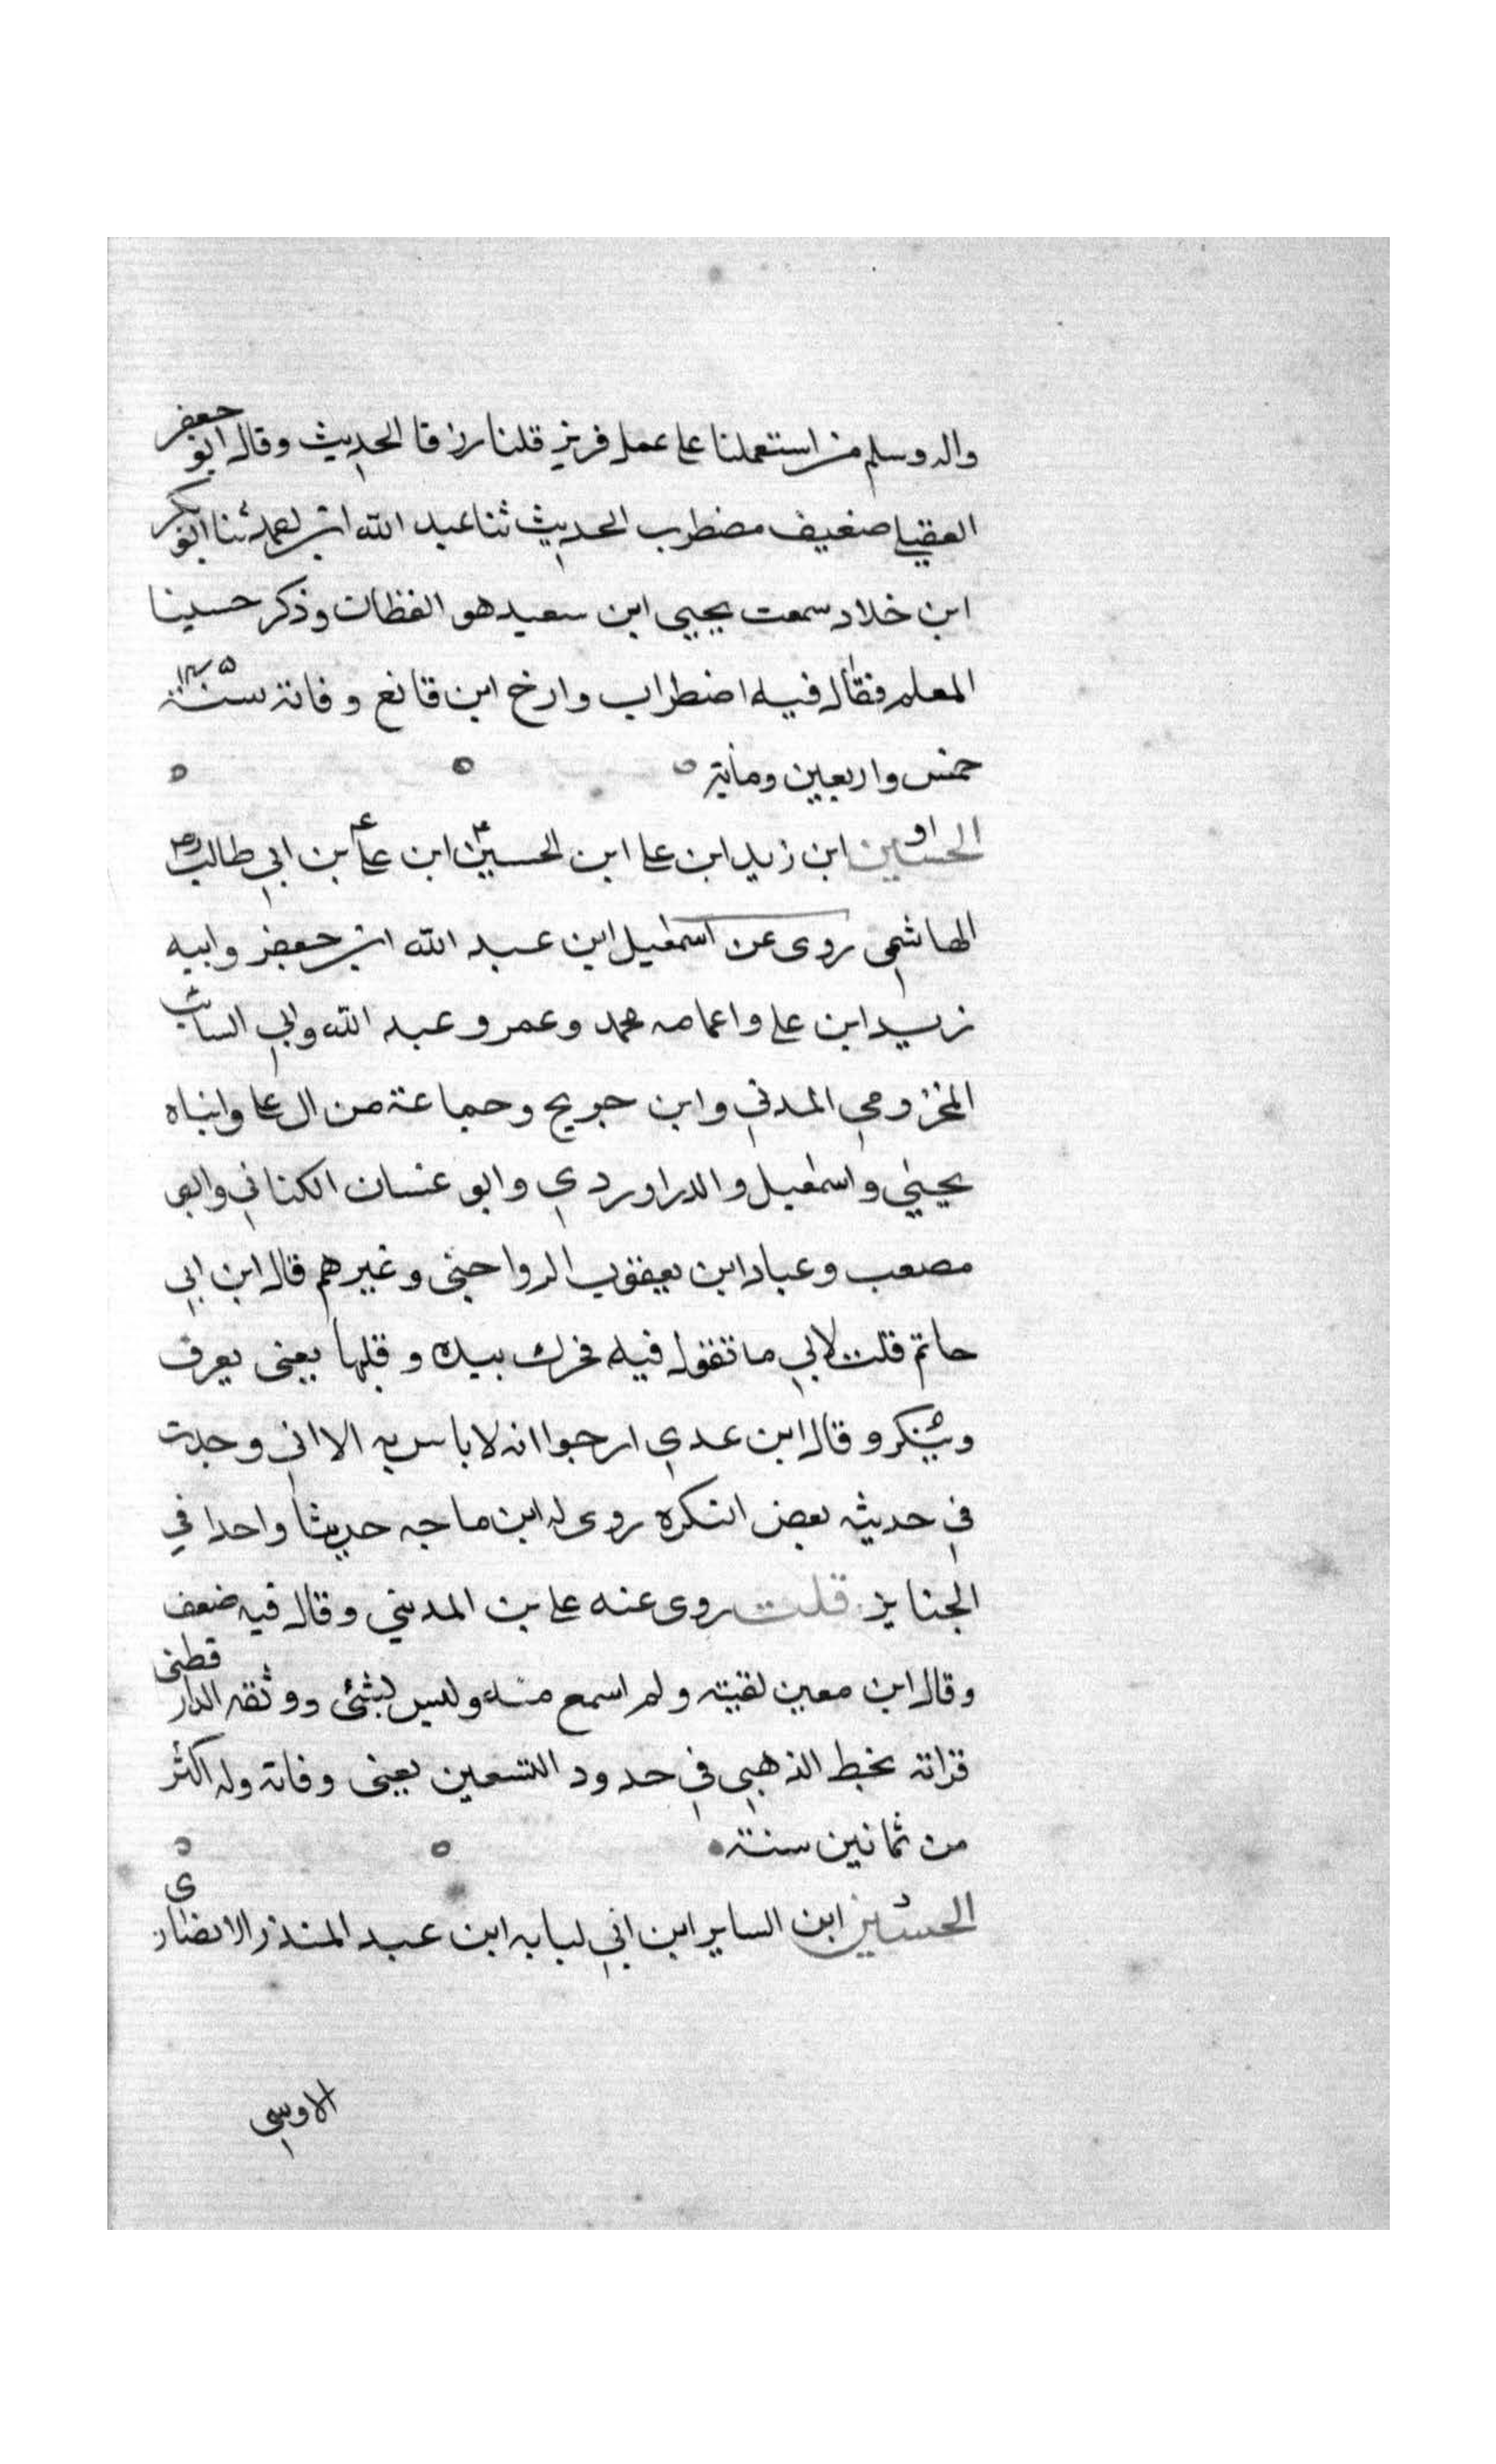 واله وسلم من استعملنا على عمل فريز قلنا رزقا الحديث وقال ابو جعفر
العقيلي ضعيف مضطرب الحديث ثنا عبد الله ابن احمد ثنا ابو بكر
ابن خلاد سمعت يحيى ابن سعيد هو القطان وذكر حسينا
المعلم فقال فيه اضطراب وارخ ابن قانع وفاته سنة ١٤٥
خمس واربعين ومأية
الحسين ابن زيد ابن على ابن الحسين ابن على ابن ابي طالب
الهاشمي روى عن اسمعيل ابن عبد الله ابن جعفر وابيه
زيد ابن على واعمامه محمد وعمر وعبد الله وابي السائب
المخزومي المدني وابن جريج وجماعة من ال على وابناه
يحيى واسمعيل والدراوردي وابو غسان الكناني وابو
مصعب وعباد ابن يعقوب الرواجنى وغيرهم قال ابن ابي
حاتم قلت لابي ما تقول فيه فحرك بيده وقلبها يعنى يعرف
وينكر وقال ابن عدي ارجوا انه لا باس به الا اني وجدت
في حديثه بعض النكره روى له ابن ماجه حديثا واحدا في
الجنايز قلت روى عنه على بن المديني وقال فيه ضعف
وقال ابن معين لقيته ولم اسمع منه وليس بشئ ووثقه الدار قطنى
قراته بخط الذهبي في حدود التسعين يعنى وفاته وله اكثر
من ثمانين سنة
الحسين ابن الساير ابن ابي لبابه ابن عبد المنذر الانصارى
الاوسي